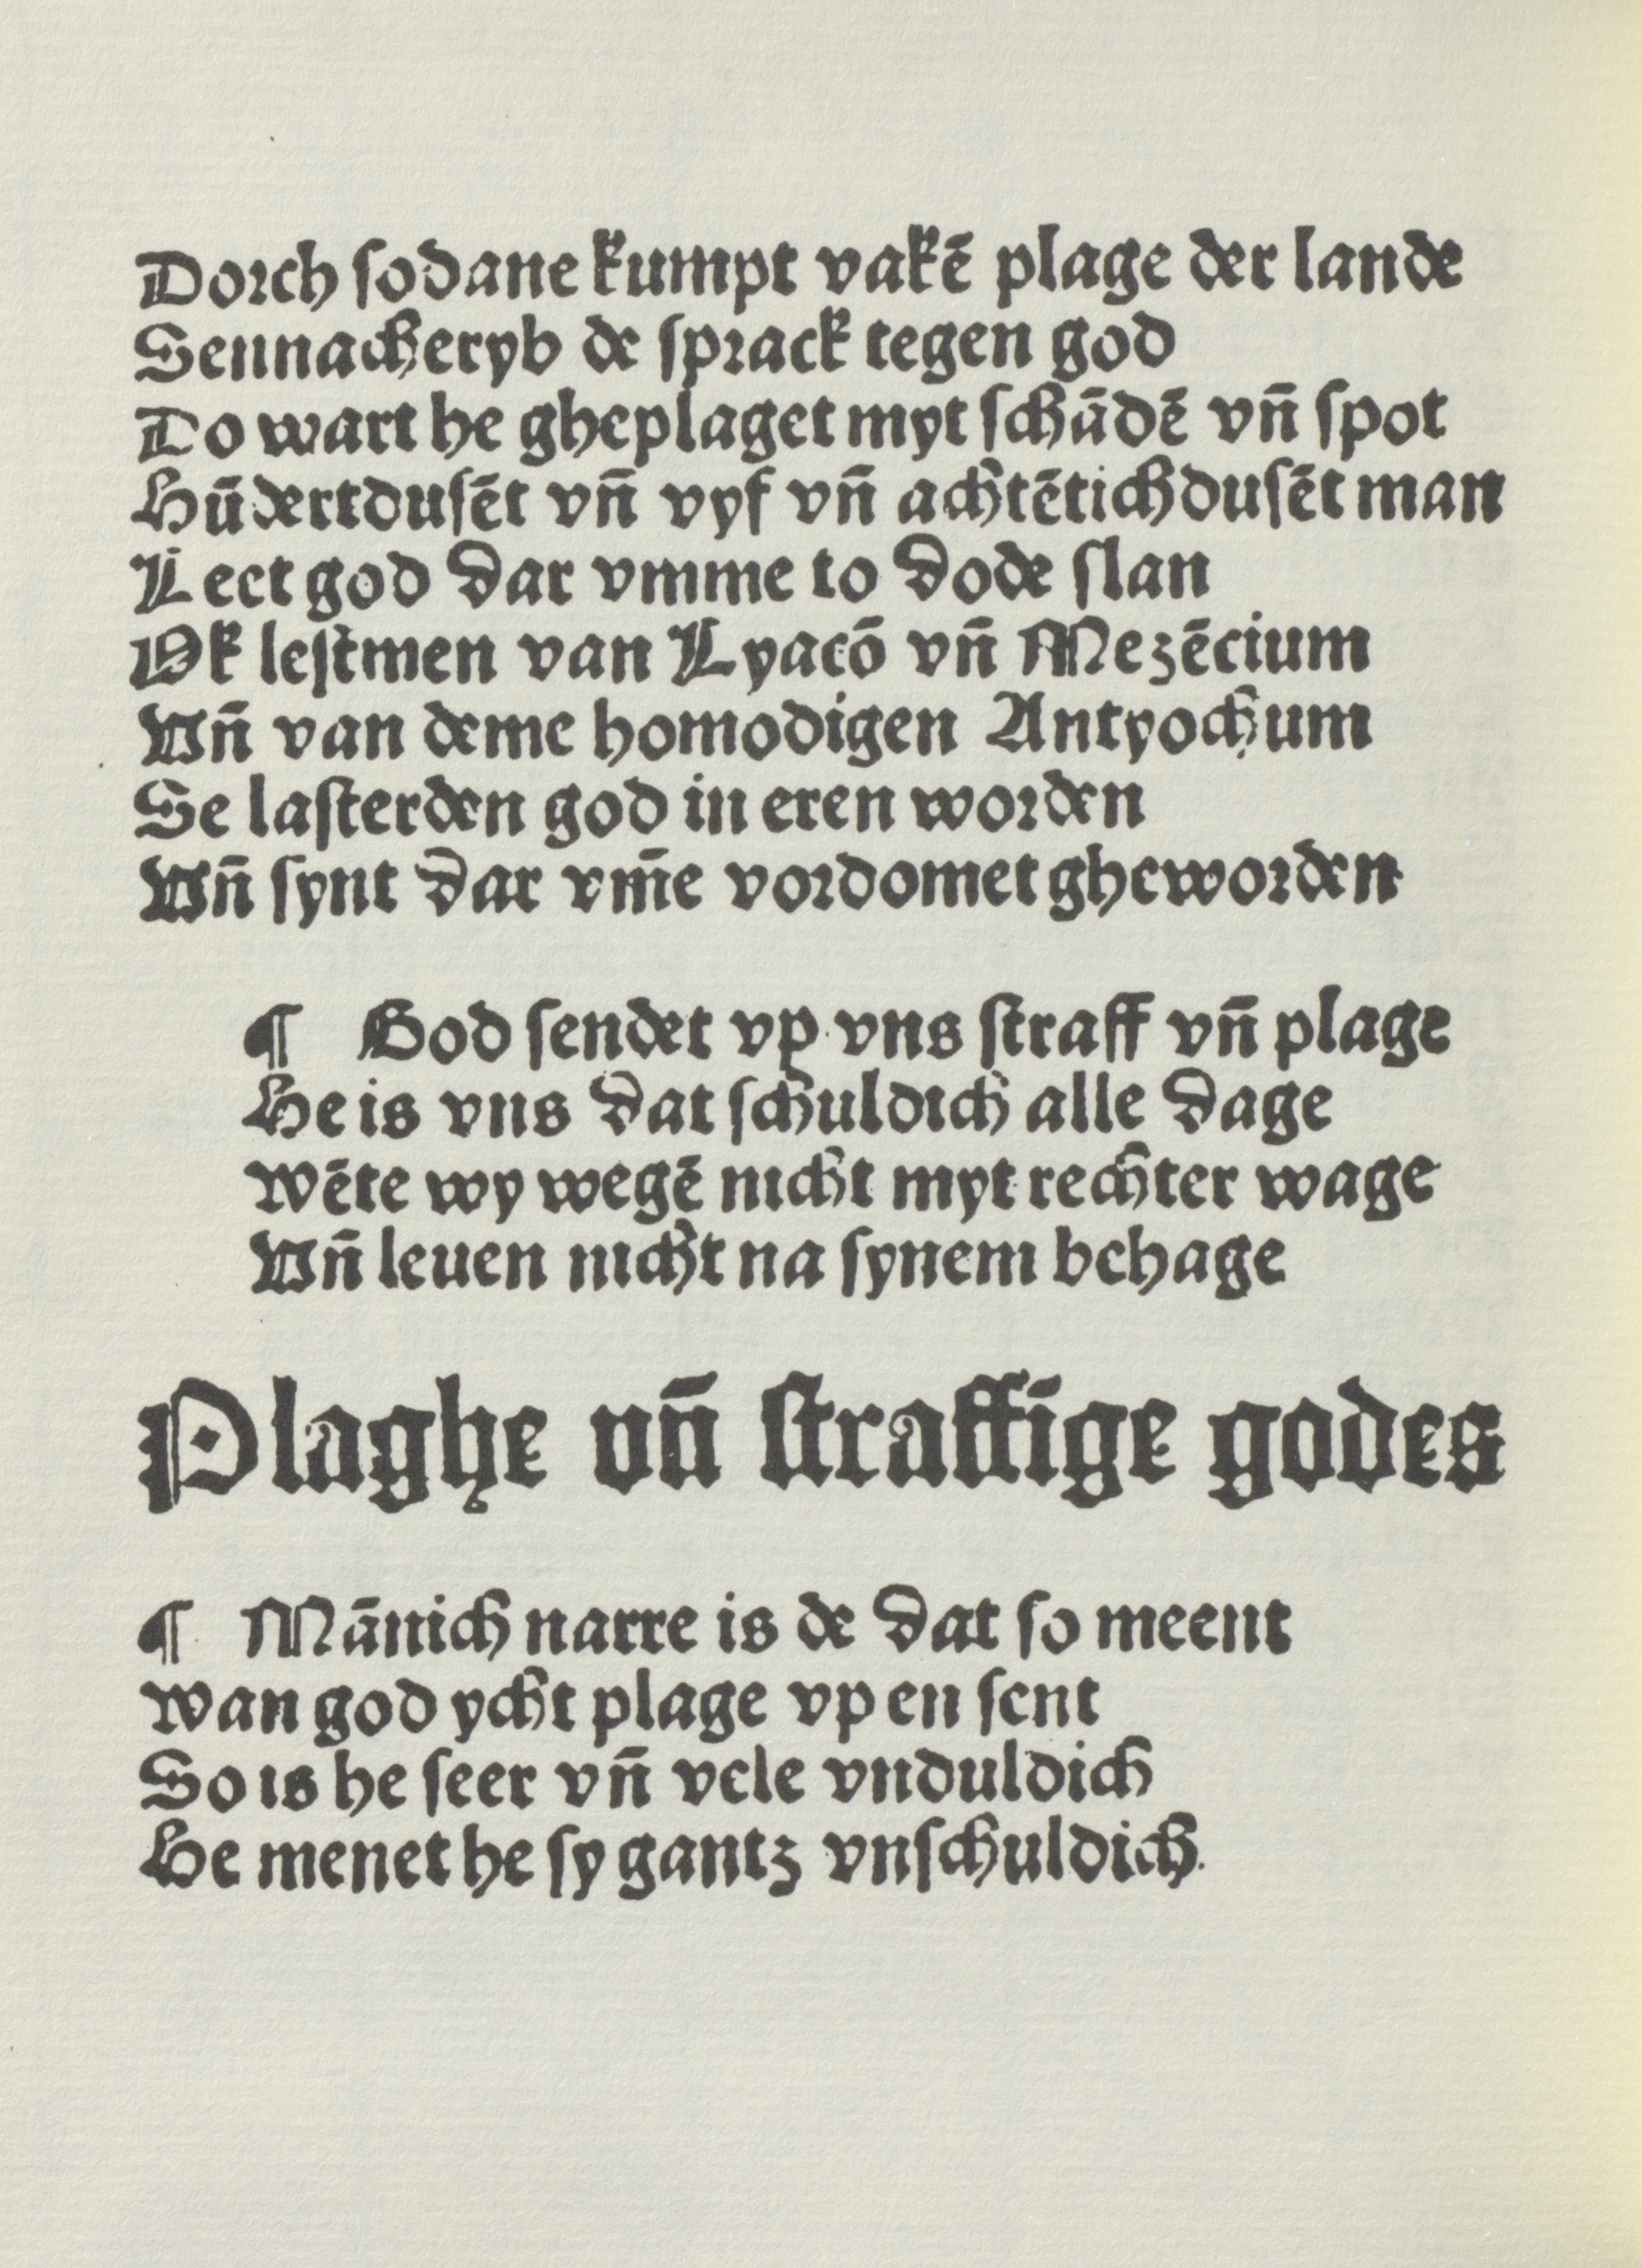 Dorch ſodane kumpt vakē plage der lande
Sennacheryb de ſprack tegen god
Do wart he gheplaget myt ſchādē vn̄ ſpot
Hūdertduſēt vn̄ vyf vn̄ achtētichduſēt man
Leet god dar vmme to dode ſlan
Ok leſtmen van Lyacō vn̄ Mezēcium
Vn̄ van deme homodigen Antyochum
Se laſterden god in eren worden
Vn̄ ſynt dar vm̄e vordomet gheworden
¶ God ſendet vp vns ſtraff vn̄ plage
He is vns dat ſchuldich alle dage
Wēte wy wegē nicht myt rechter wage
Vn̄ leuen nicht na ſynem behage
Plaghe vn̄ ſtraffīge godes
¶ Mānich narre is de dat ſo meent
Wan god ycht plage vp en ſent
So is he ſeer vn̄ vele vnduldich
He menet he ſy gantz vnſchuldich.